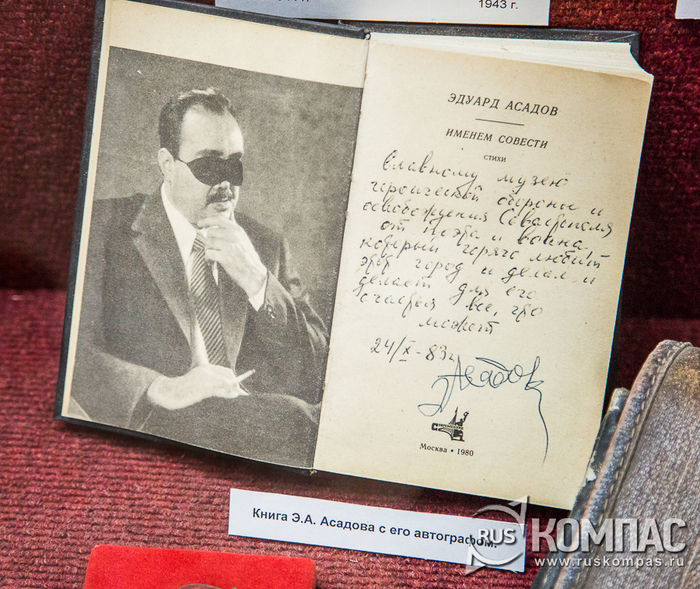 1943 г.
ЭДУАРД АСАДОВ
ИМЕНЕМ СОВЕСТИ
СТИХИ
Славному музею
героической обороны и
освобождения Севастополя
от поэта и воина,
который горячо любит
этот город и делал и
делает для его
счастья все, что
может
24/X-83 г.
Асадов
Москва • 1980
Книга Э.А. Асадова с его автографом.
RUS КОМПАС
www.ruskompas.ru